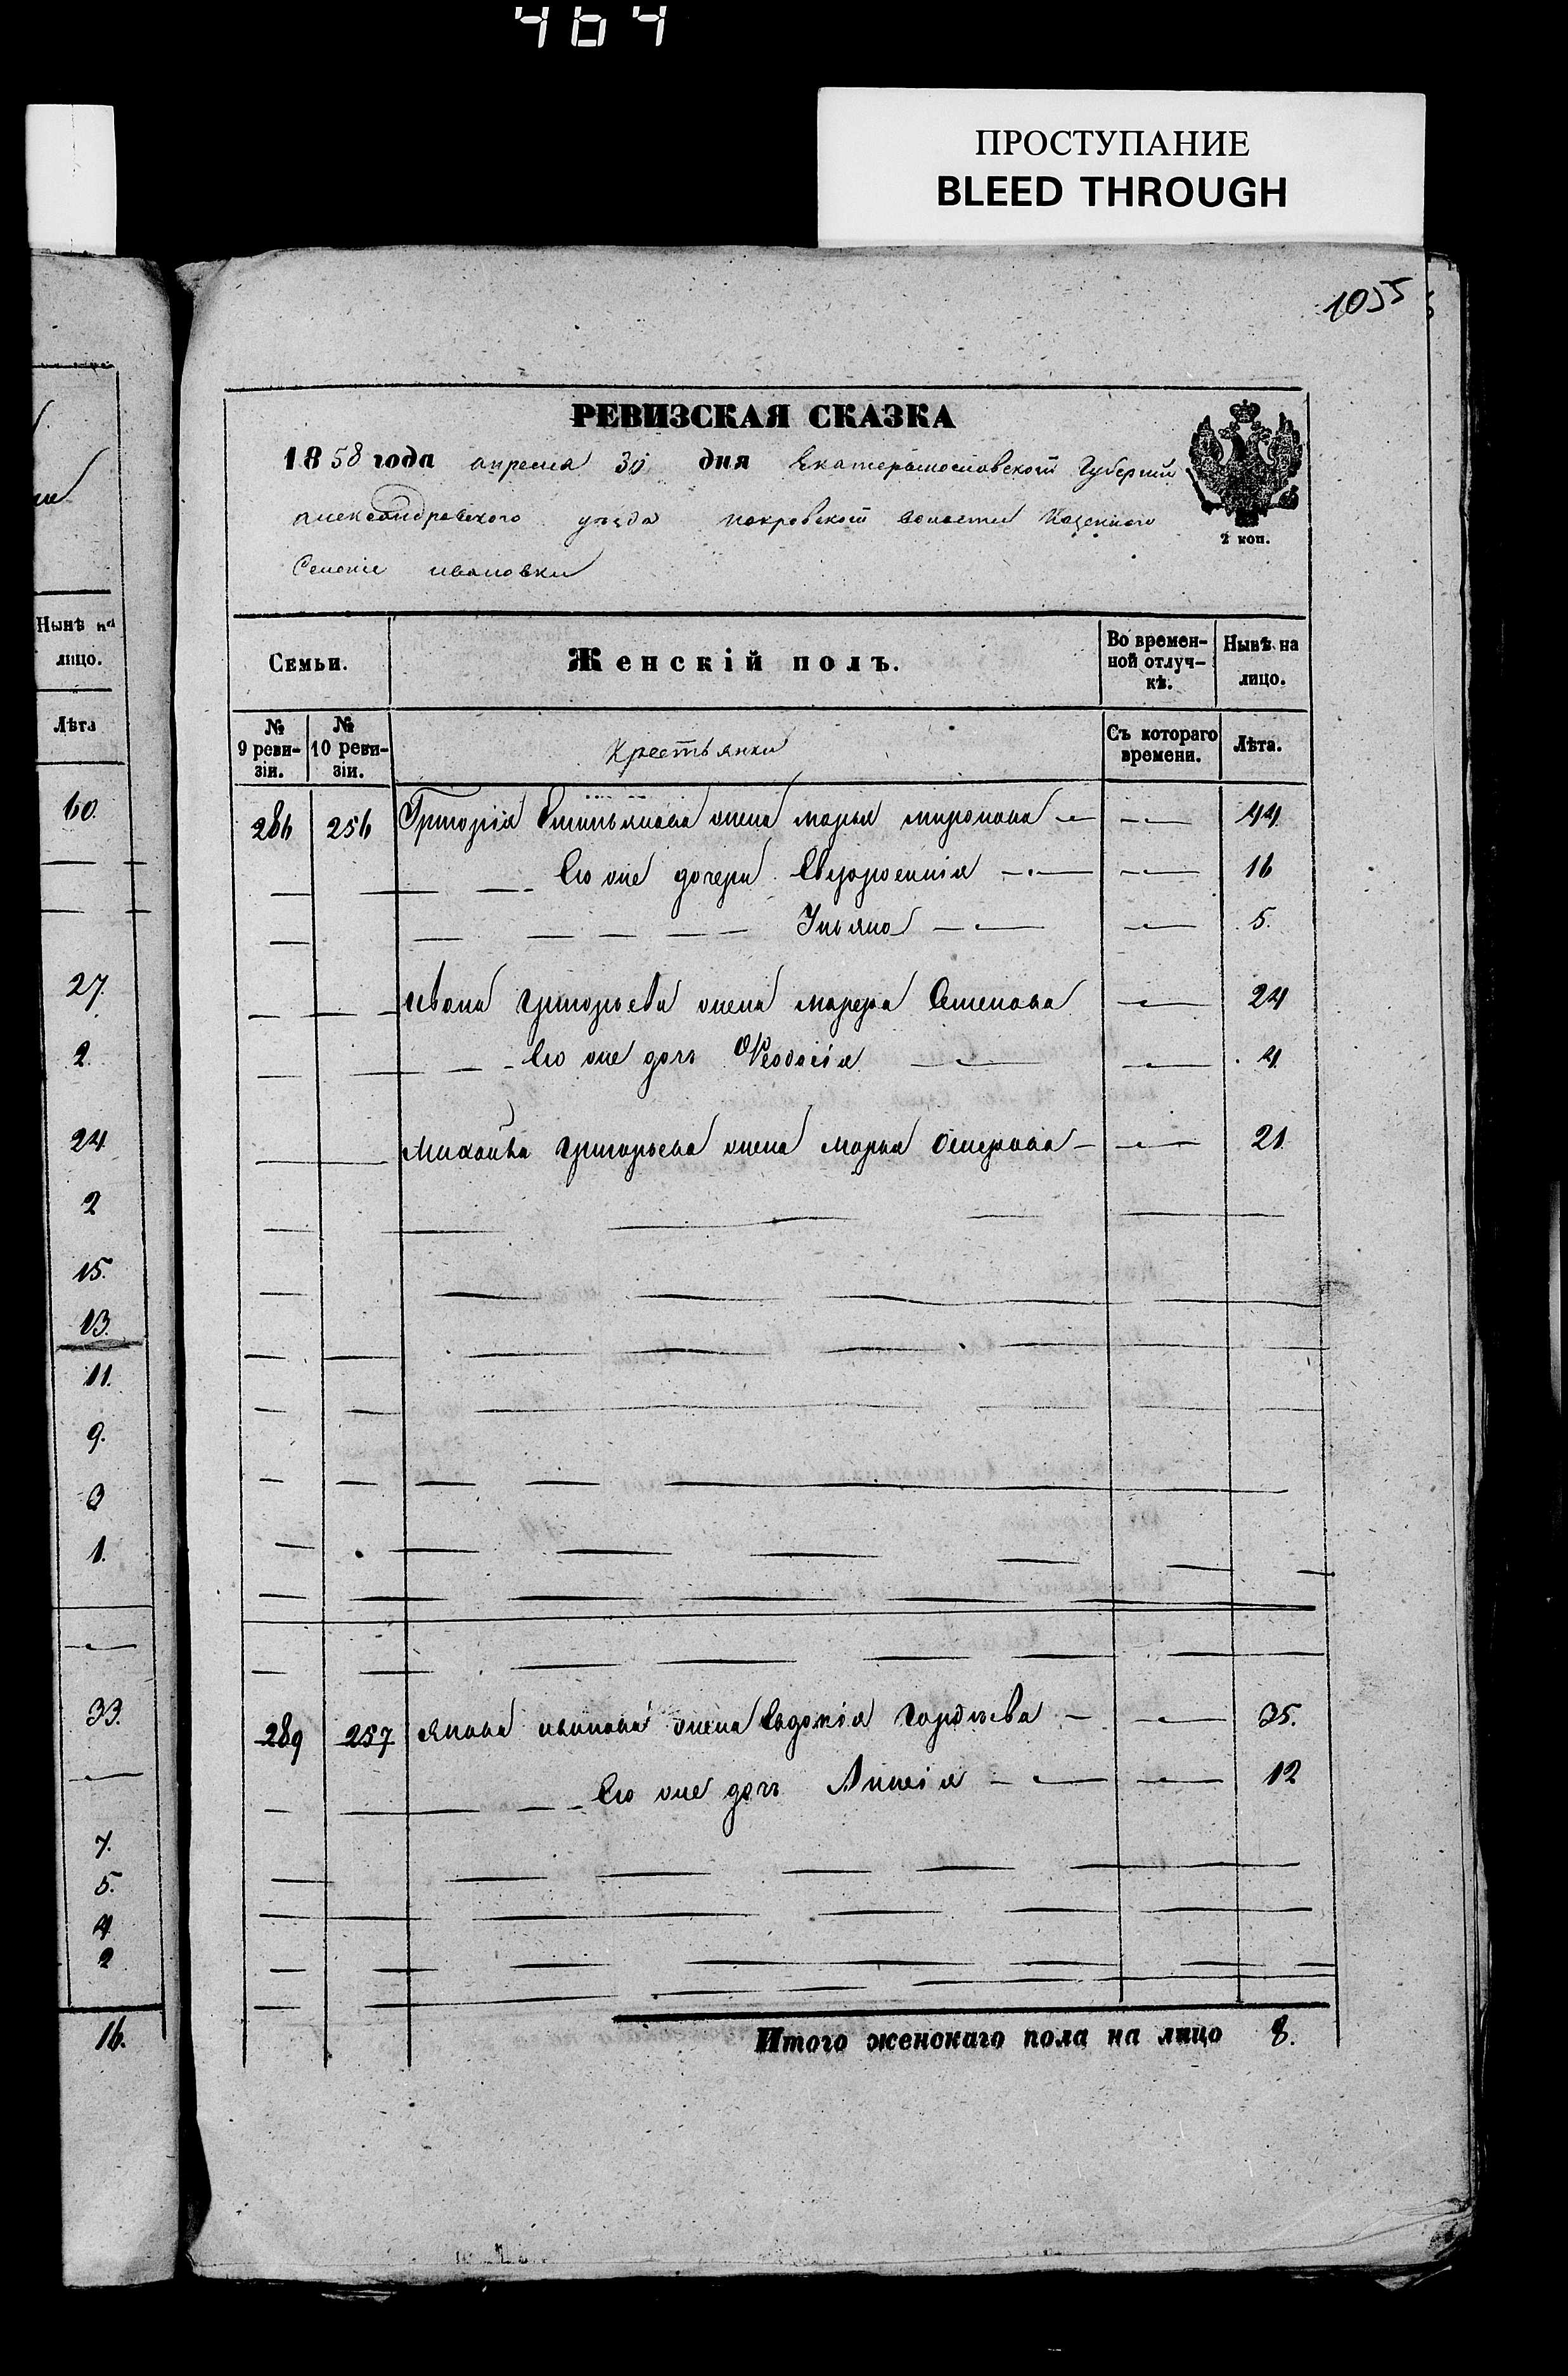 464
ПРОСТУПАНИЕ
BLEED THROUGH
1055
РЕВИЗСКАЯ СКАЗКА
1858 года апреля 30 дня Екатеринославской Губернии
александровского уезда покровской волости Казенного
Селения ивановки
2 коп.
Нынѣ на
лицо.
Лѣта
60.
27.
2.
24
2
15.
13.
11.
9.
3
1.
33.
7.
5.
4
2
16.
Семьи.
Женскій полъ.
Во времен-
ной отлуч-
кѣ.
Нынѣ на
лицо.
№
9 реви-
зіи.
№
10 реви-
зіи.
Крестьянки
Съ котораго
времени.
Лѣта.
286 256 Григорія жена марья миронова 44
Его же дочери Евфросинія 16
Ульяна 5.
ивана григорьева жена марфа Семенова 24
Его же дочь Феодосія 4
Михайла григорьева жена марья 21
289 257 Якова иванова жена Евдокія Гордѣева 35.
Его же дочь Анисія 12
Итого женскаго пола на лицо 8.